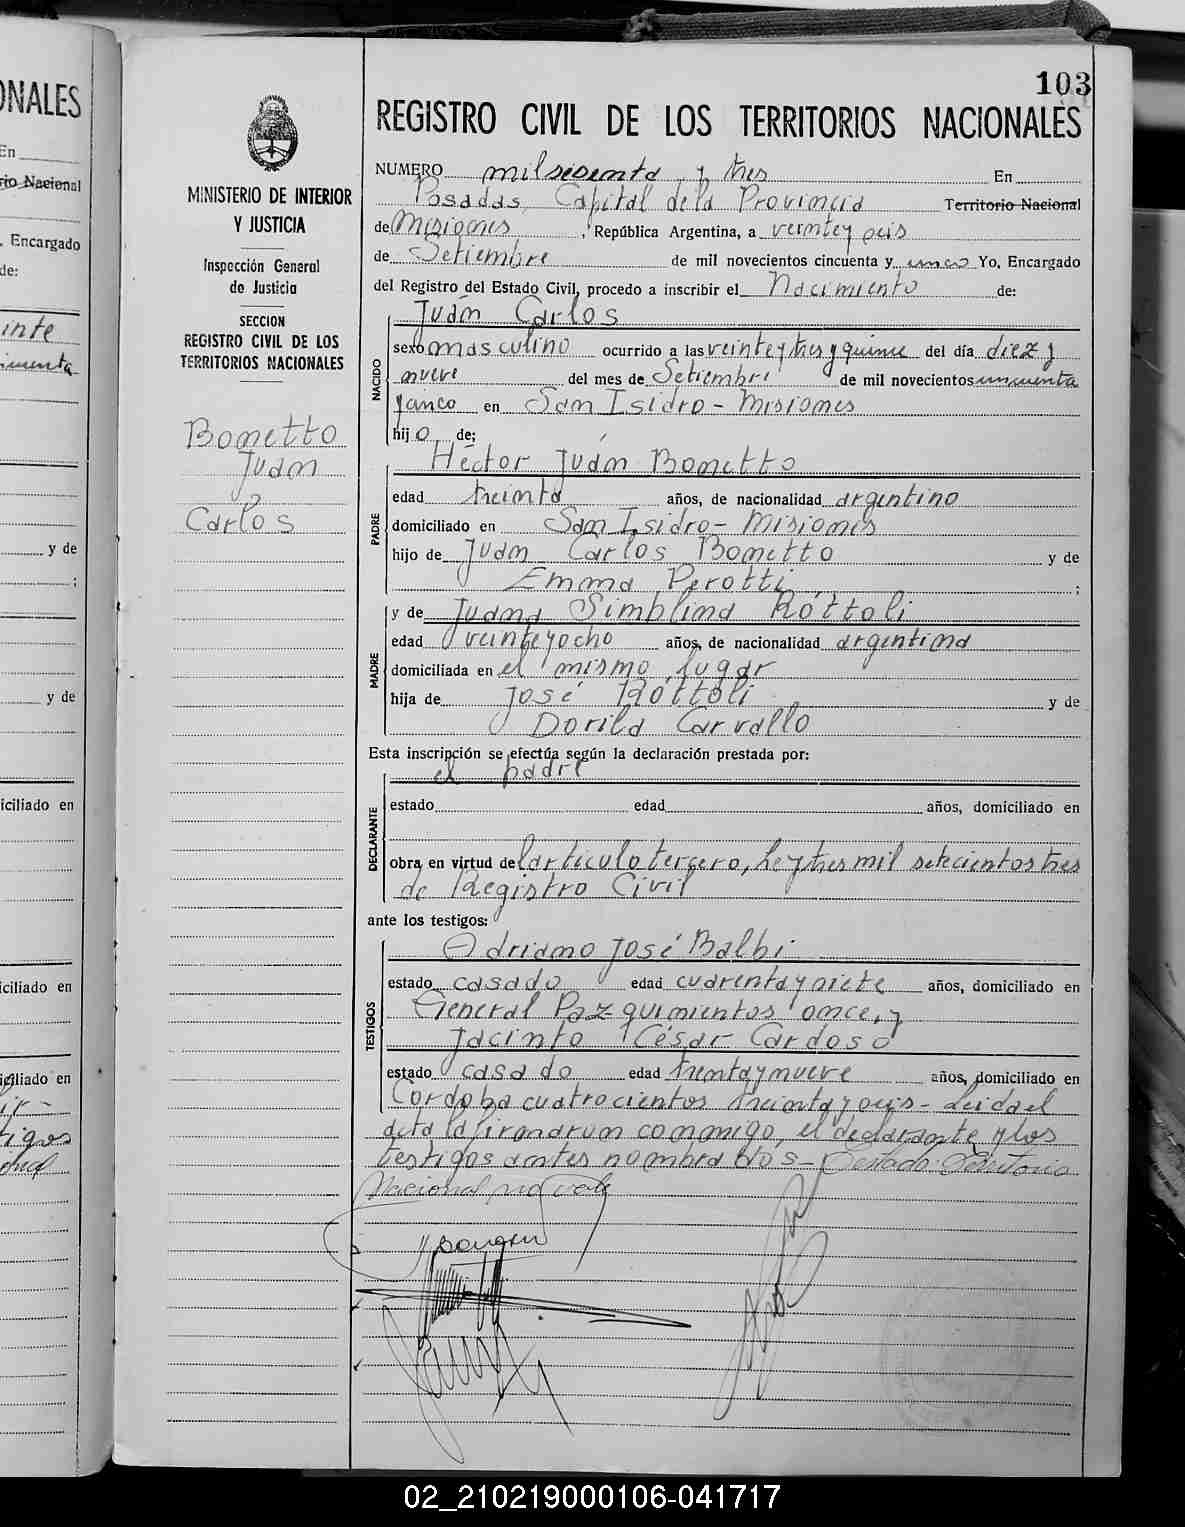 103
REGISTRO CIVIL DE LOS TERRITORIOS NACIONALES
MINISTERIO DE INTERIOR
Y JUSTICIA
Inspección General
de Justicia
SECCION
REGISTRO CIVIL DE LOS
TERRITORIOS NACIONALES
Bonetto
Juan
Carlos
NUMERO mil sesenta y tres En
Posadas, Capital de la Provincia Territorio Nacional
de Misiones, República Argentina, a veinteyseis
de Setiembre de mil novecientos cincuenta y unco Yo, Encargado
del Registro del Estado Civil, procedo a inscribir el Nacimiento de:
NACIDO
Juan Carlos
sexo masculino ocurrido a las veinteytres y quince del día diez y
nueve del mes de Setiembre de mil novecientos cincuenta
y unco en San Isidro - Misiones
hijo de;
PADRE
Héctor Juan Bonetto
edad treinta años, de nacionalidad argentino
domiciliado en San Isidro - Misiones
hijo de Juan Carlos Bonetto y de
Emma Perotti ;
MADRE
y de Juana Simblina Róttoli
edad veinteyocho años, de nacionalidad argentina
domiciliada en el mismo lugar
hija de José Róttoli y de
Dorila Carvallo
Esta inscripción se efectúa según la declaración prestada por:
DECLARANTE
el padre
estado edad años, domiciliado en
obra en virtud del artículo tercero, Ley tres mil setecientos tres
de Registro Civil
ante los testigos:
TESTIGOS
Adriano José Balbi
estado casado edad cuarenta y siete años, domiciliado en
General Paz quinientos once, y
Jacinto César Cardoso
estado casado edad treinta y nueve años, domiciliado en
Córdoba cuatrocientos treinta y seis - Leida el
acta la firmaron conmigo, el declarante y los
testigos antes nombrados - Testado: Territorio
Nacional no vale
ONALES
En
rio Nacional
, Encargado
de:
inte
y de
y de
iciliado en
iciliado en
iciliado en
tigos
02_210219000106-041717